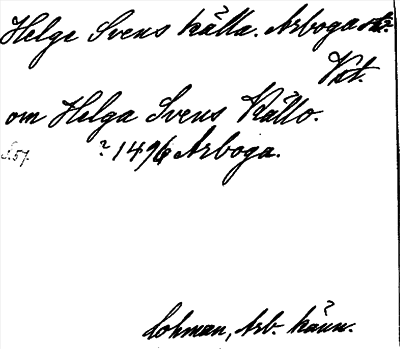 Helge Svens källa. Arboga
Vst.
om Helga Svens Källo.
S. 57. ? 1496 Arboga.
Lohman, Arb. känn.